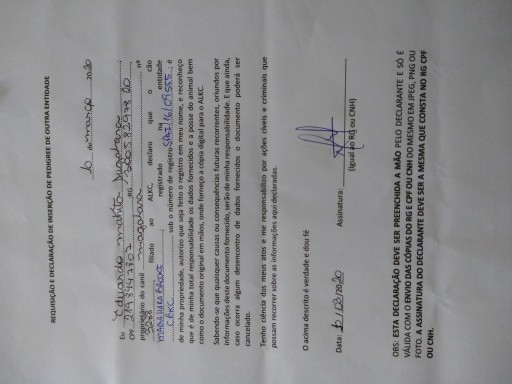 REQUISIÇÃO E DECLARAÇÃO DE INSERÇÃO DE PEDIGREE DE OUTRA ENTIDADE
16 de março 2020
Eu Eduardo
CPF RG
proprietário do canil nº
filiado ao ALKC, declaro que o cão
registrado na entidade
CBKC sob o número de registro é
de minha propriedade, autorizo que seja feito o registro em meu nome, e reconheço
que é de minha total responsabilidade os dados fornecidos e a posse do animal bem
como o documento original em mãos, onde forneço a cópia digital para o ALKC.
Sabendo-se que quaisquer causas ou consequências futuras recorrentes, oriundos por
informações deste documento fornecido, serão de minha responsabilidade. E que ainda,
caso ocorra algum desencontro de dados fornecidos o documento poderá ser
cancelado.
Tenho ciência dos meus atos e me responsabilizo por ações cíveis e criminais que
possam recorrer sobre as informações aqui declaradas.
O acima descrito é verdade e dou fé
Data: Assinatura:
(Igual ao RG ou CNH)
OBS: ESTA DECLARAÇÃO DEVE SER PREENCHIDA A MÃO PELO DECLARANTE E SÓ É
VÁLIDA COM O ENVIO DAS CÓPIAS DO RG E CPF OU CNH DO MESMO EM JPEG, PNG OU
FOTO. A ASSINATURA DO DECLARANTE DEVE SER A MESMA QUE CONSTA NO RG CPF
OU CNH.